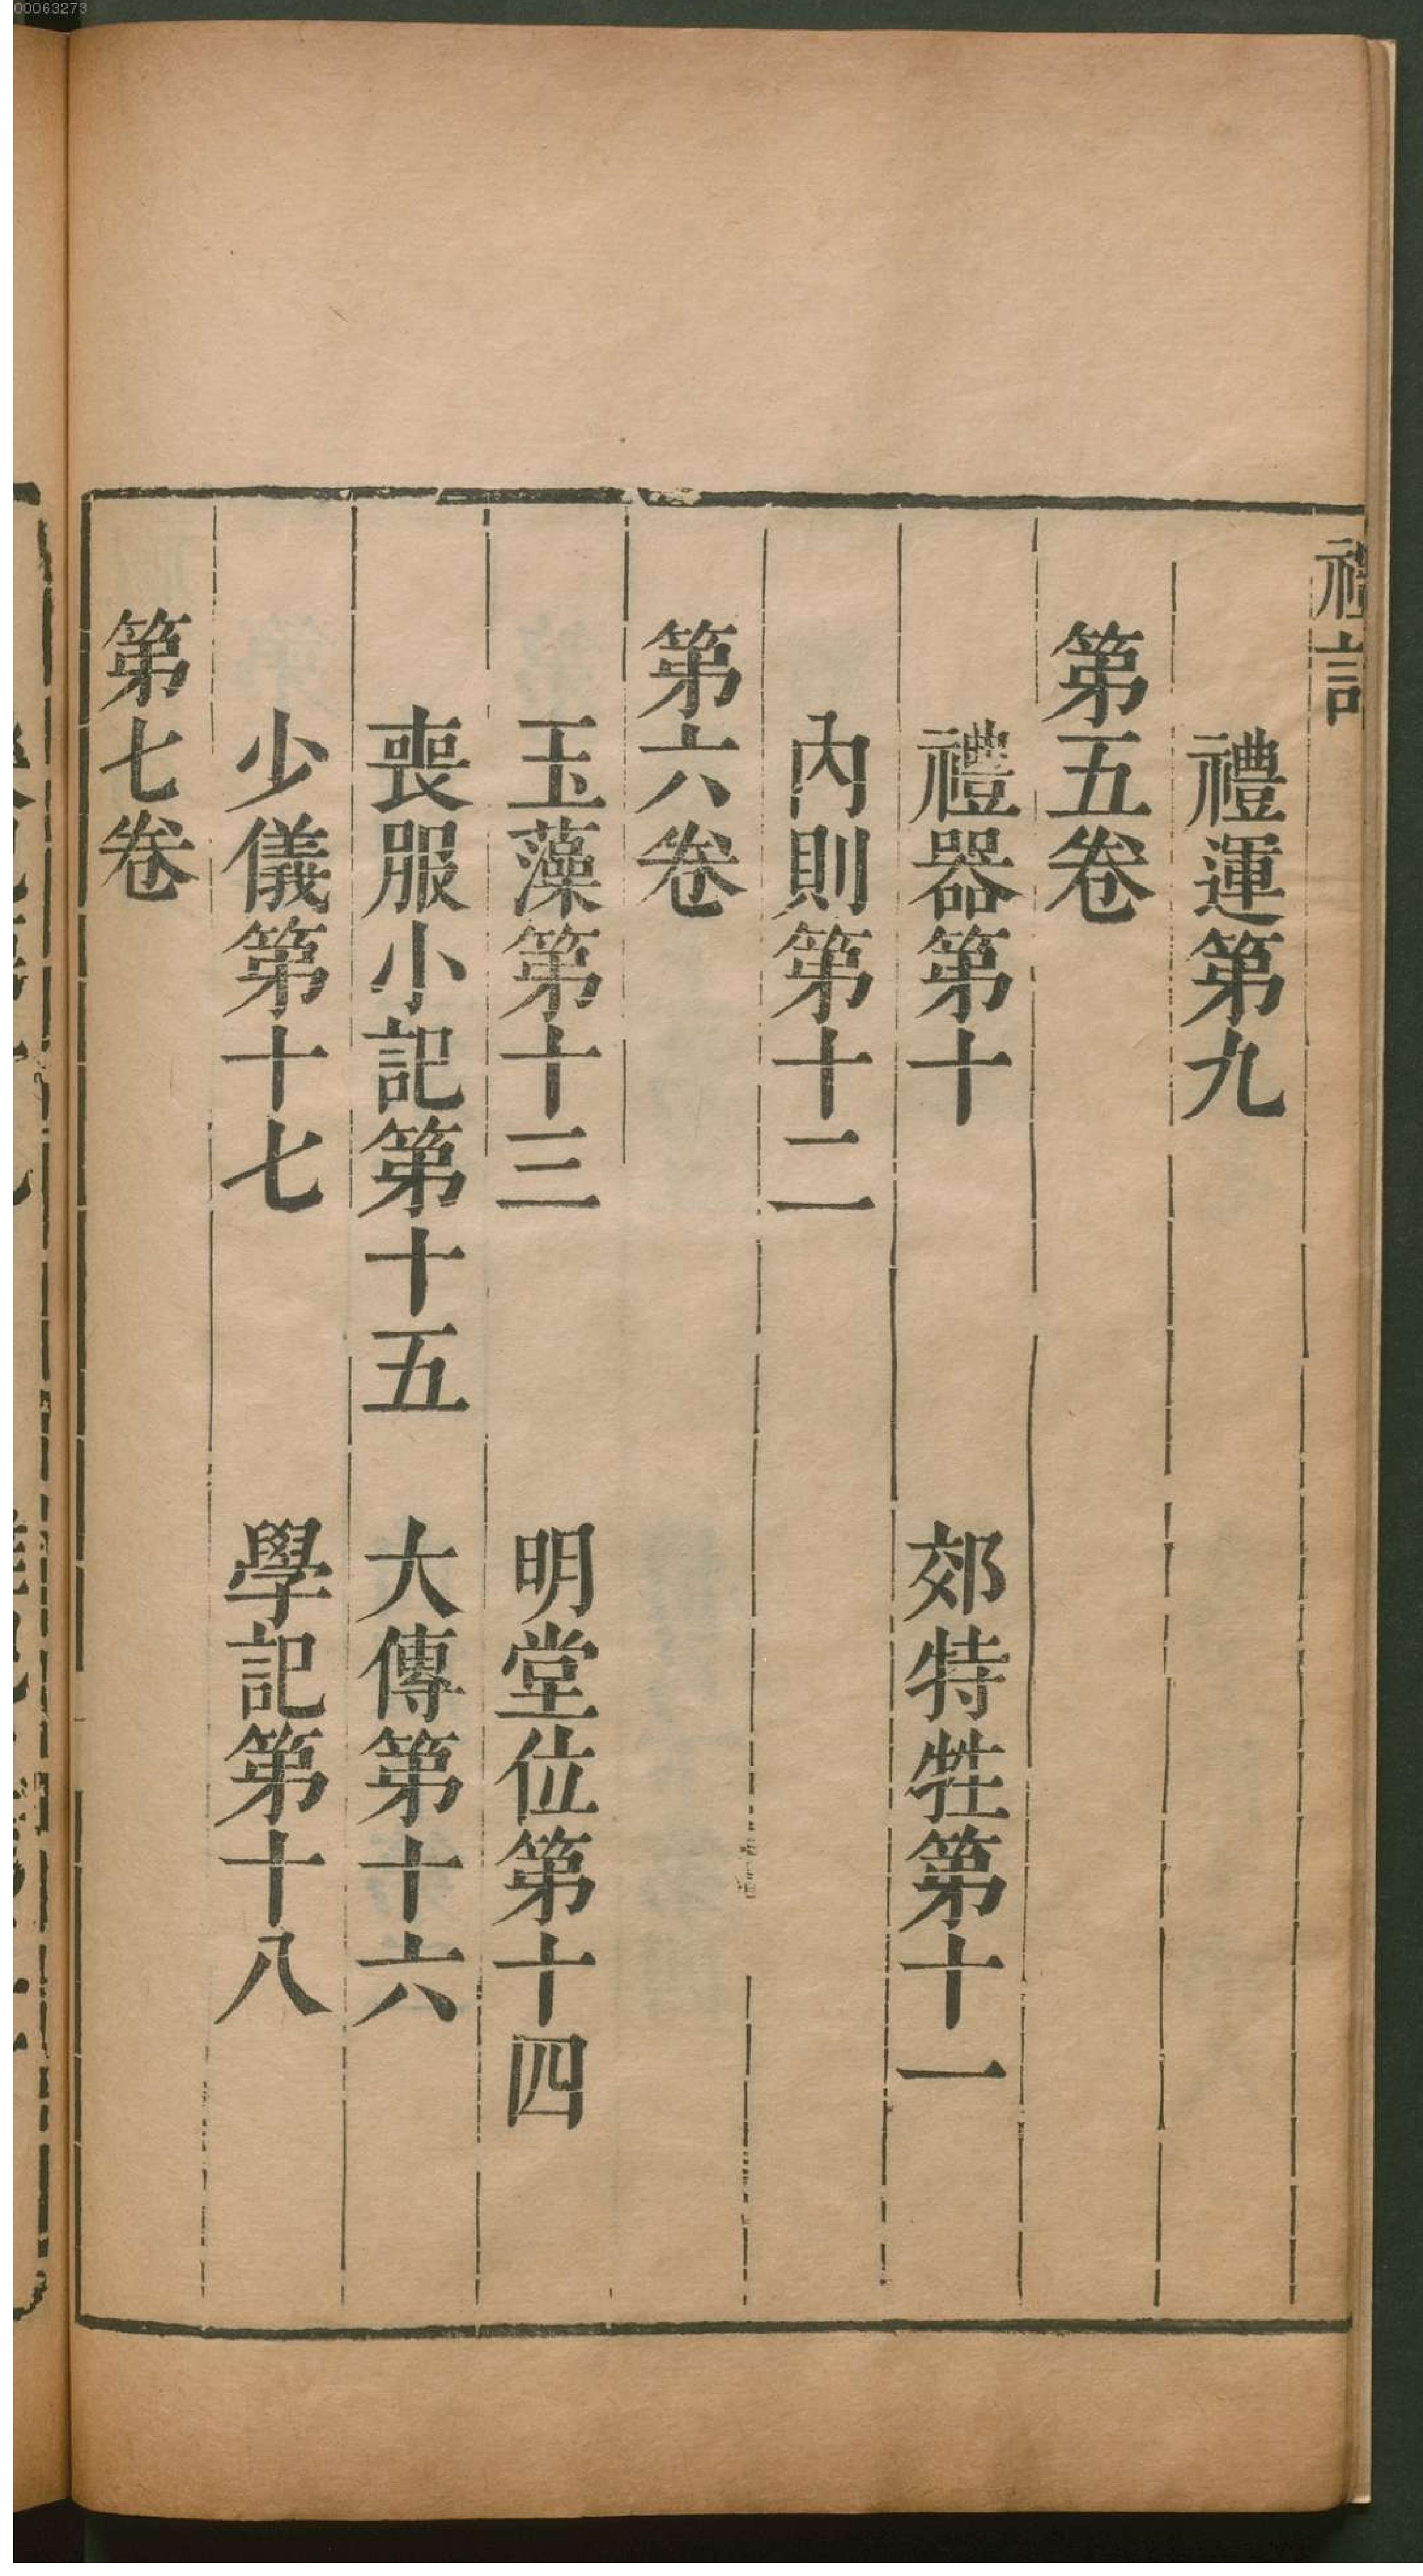 00063273
禮記
禮運第九
第五卷
禮器第十　郊特牲第十一
內則第十二
第六卷
玉藻第十三　明堂位第十四
喪服小記第十五　大傳第十六
少儀第十七　學記第十八
第七卷